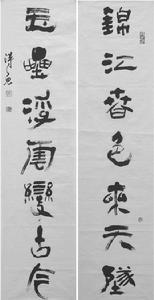 錦江春色來天墬
玉壘浮雲變古今